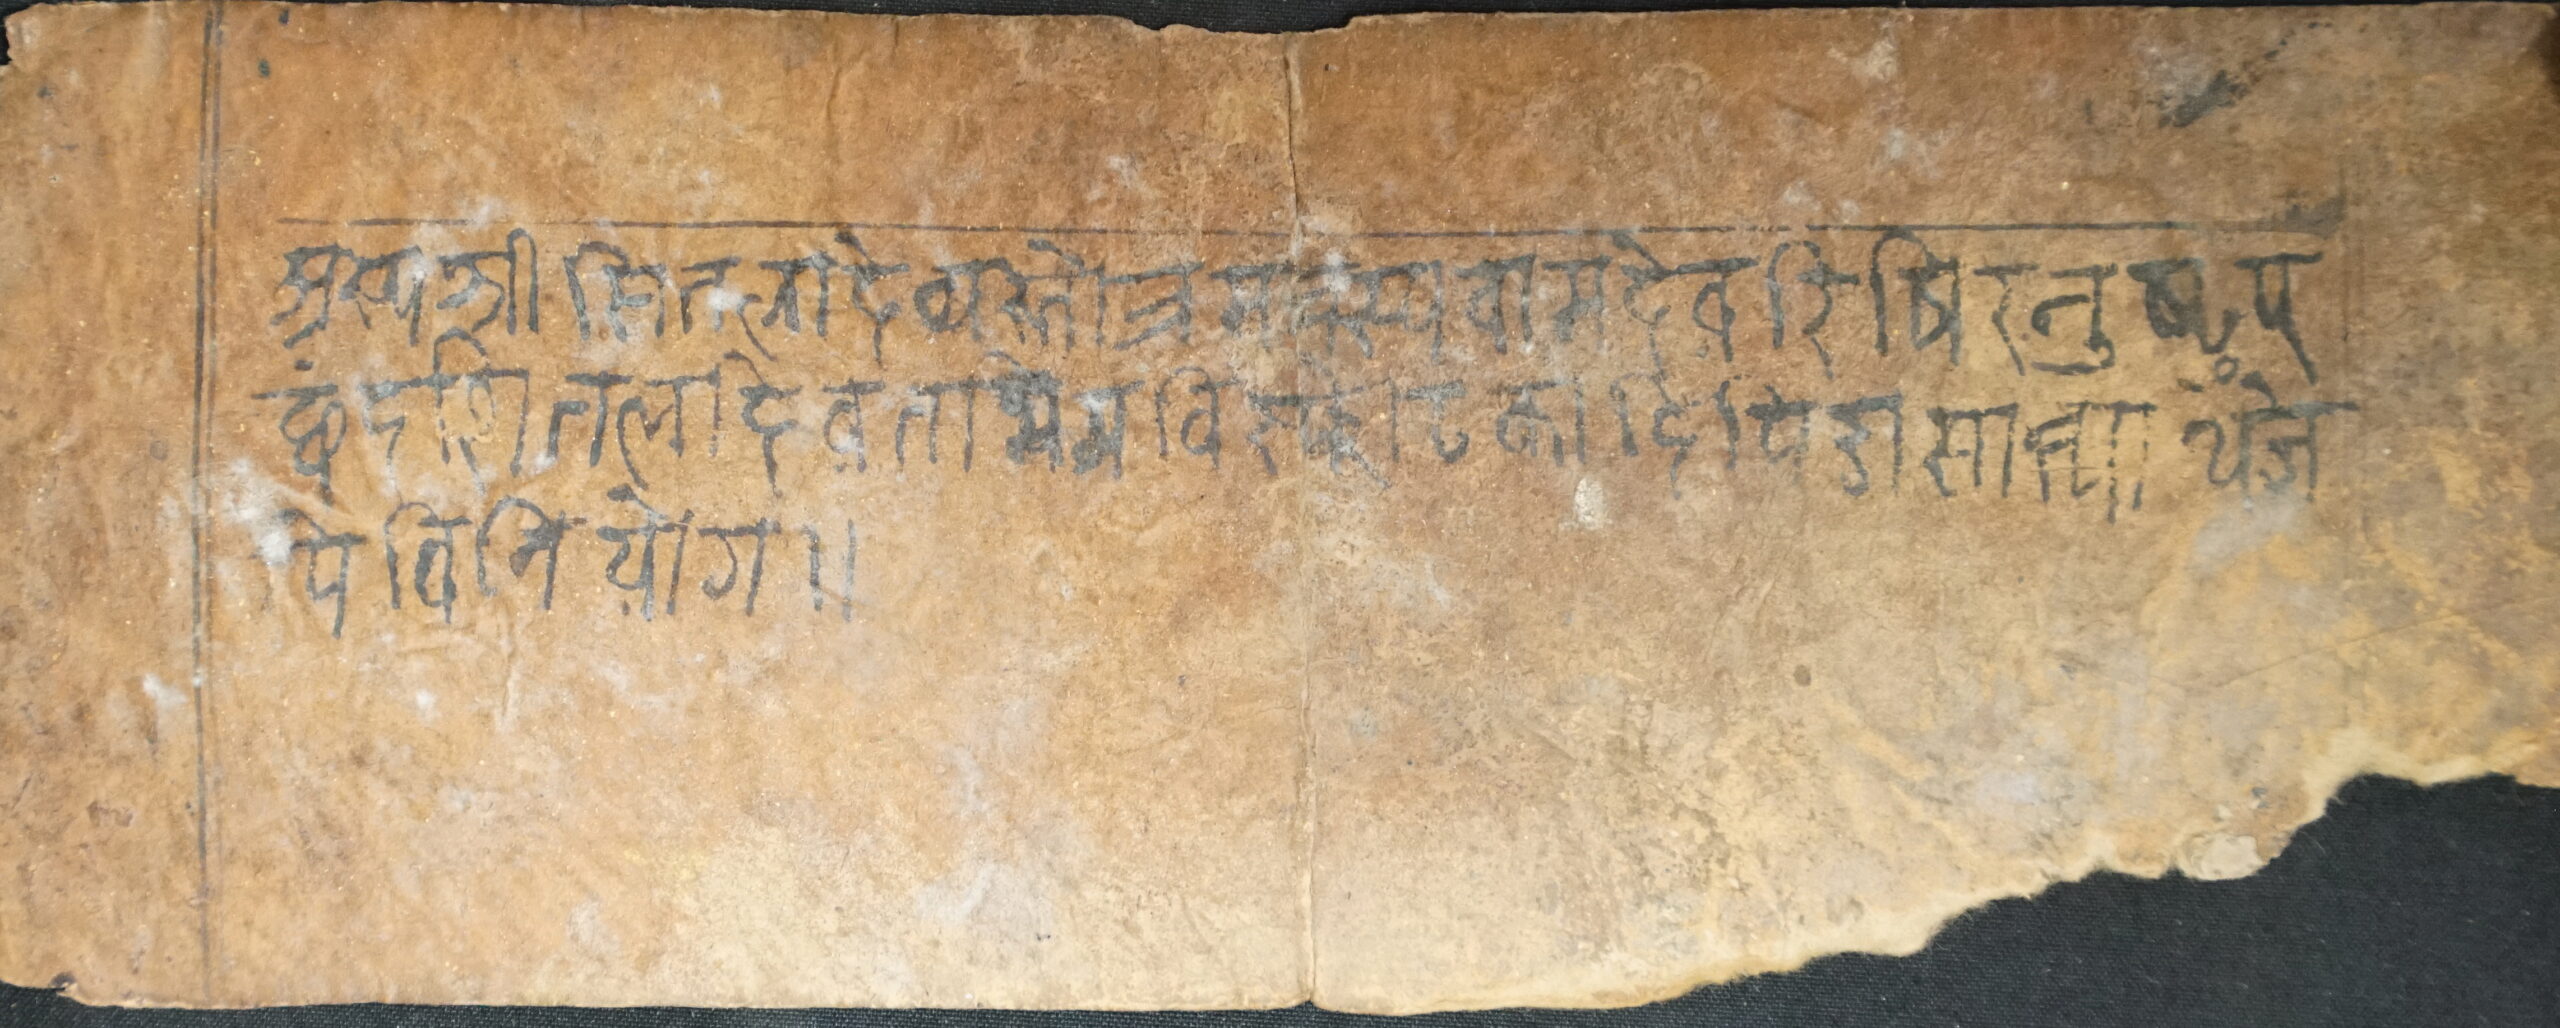 अस्य श्री सितलादेव्यस्तोत्र मन्त्रस्य वामदेव रिषि रनुष्टुप्
छंद शितला देवता मम विस्फोटकादि पिडा सान्त्या र्थं ज
पे विनियोग ॥